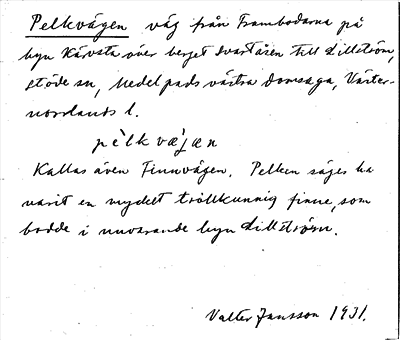 Pelkvägen väg från Frambodarna på
byn Kärvsta över berget Svartåsen till Lillström,
Stöde sn, Medelpads västra domsaga, Väster-
norrlands l.
pèlkvæ̀jæn
Kallas även Finnvägen. Pelken säges ha
varit en mycket trollkunnig finne, som
bodde i nuvarande byn Lillström.
Valter Jansson 1931.